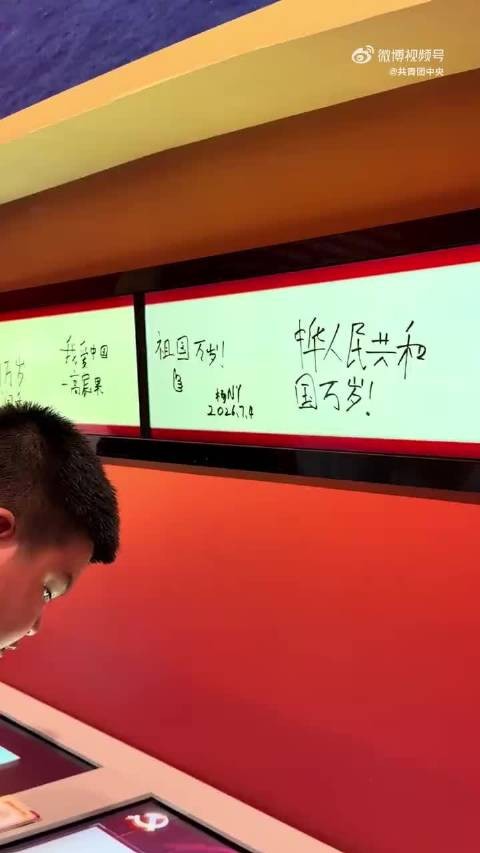 微博视频号
@共青团中央
万岁
我爱中国
祖国万岁!
2026.7.4
中华人民共和
国万岁!